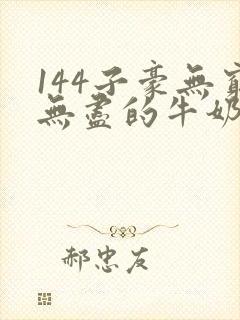 144子豪無窮
無盡的牛奶
郝忠友